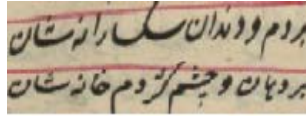 بر دم و دندان سگسارانه شان
بر دهان و چشم کژدم خانه شان